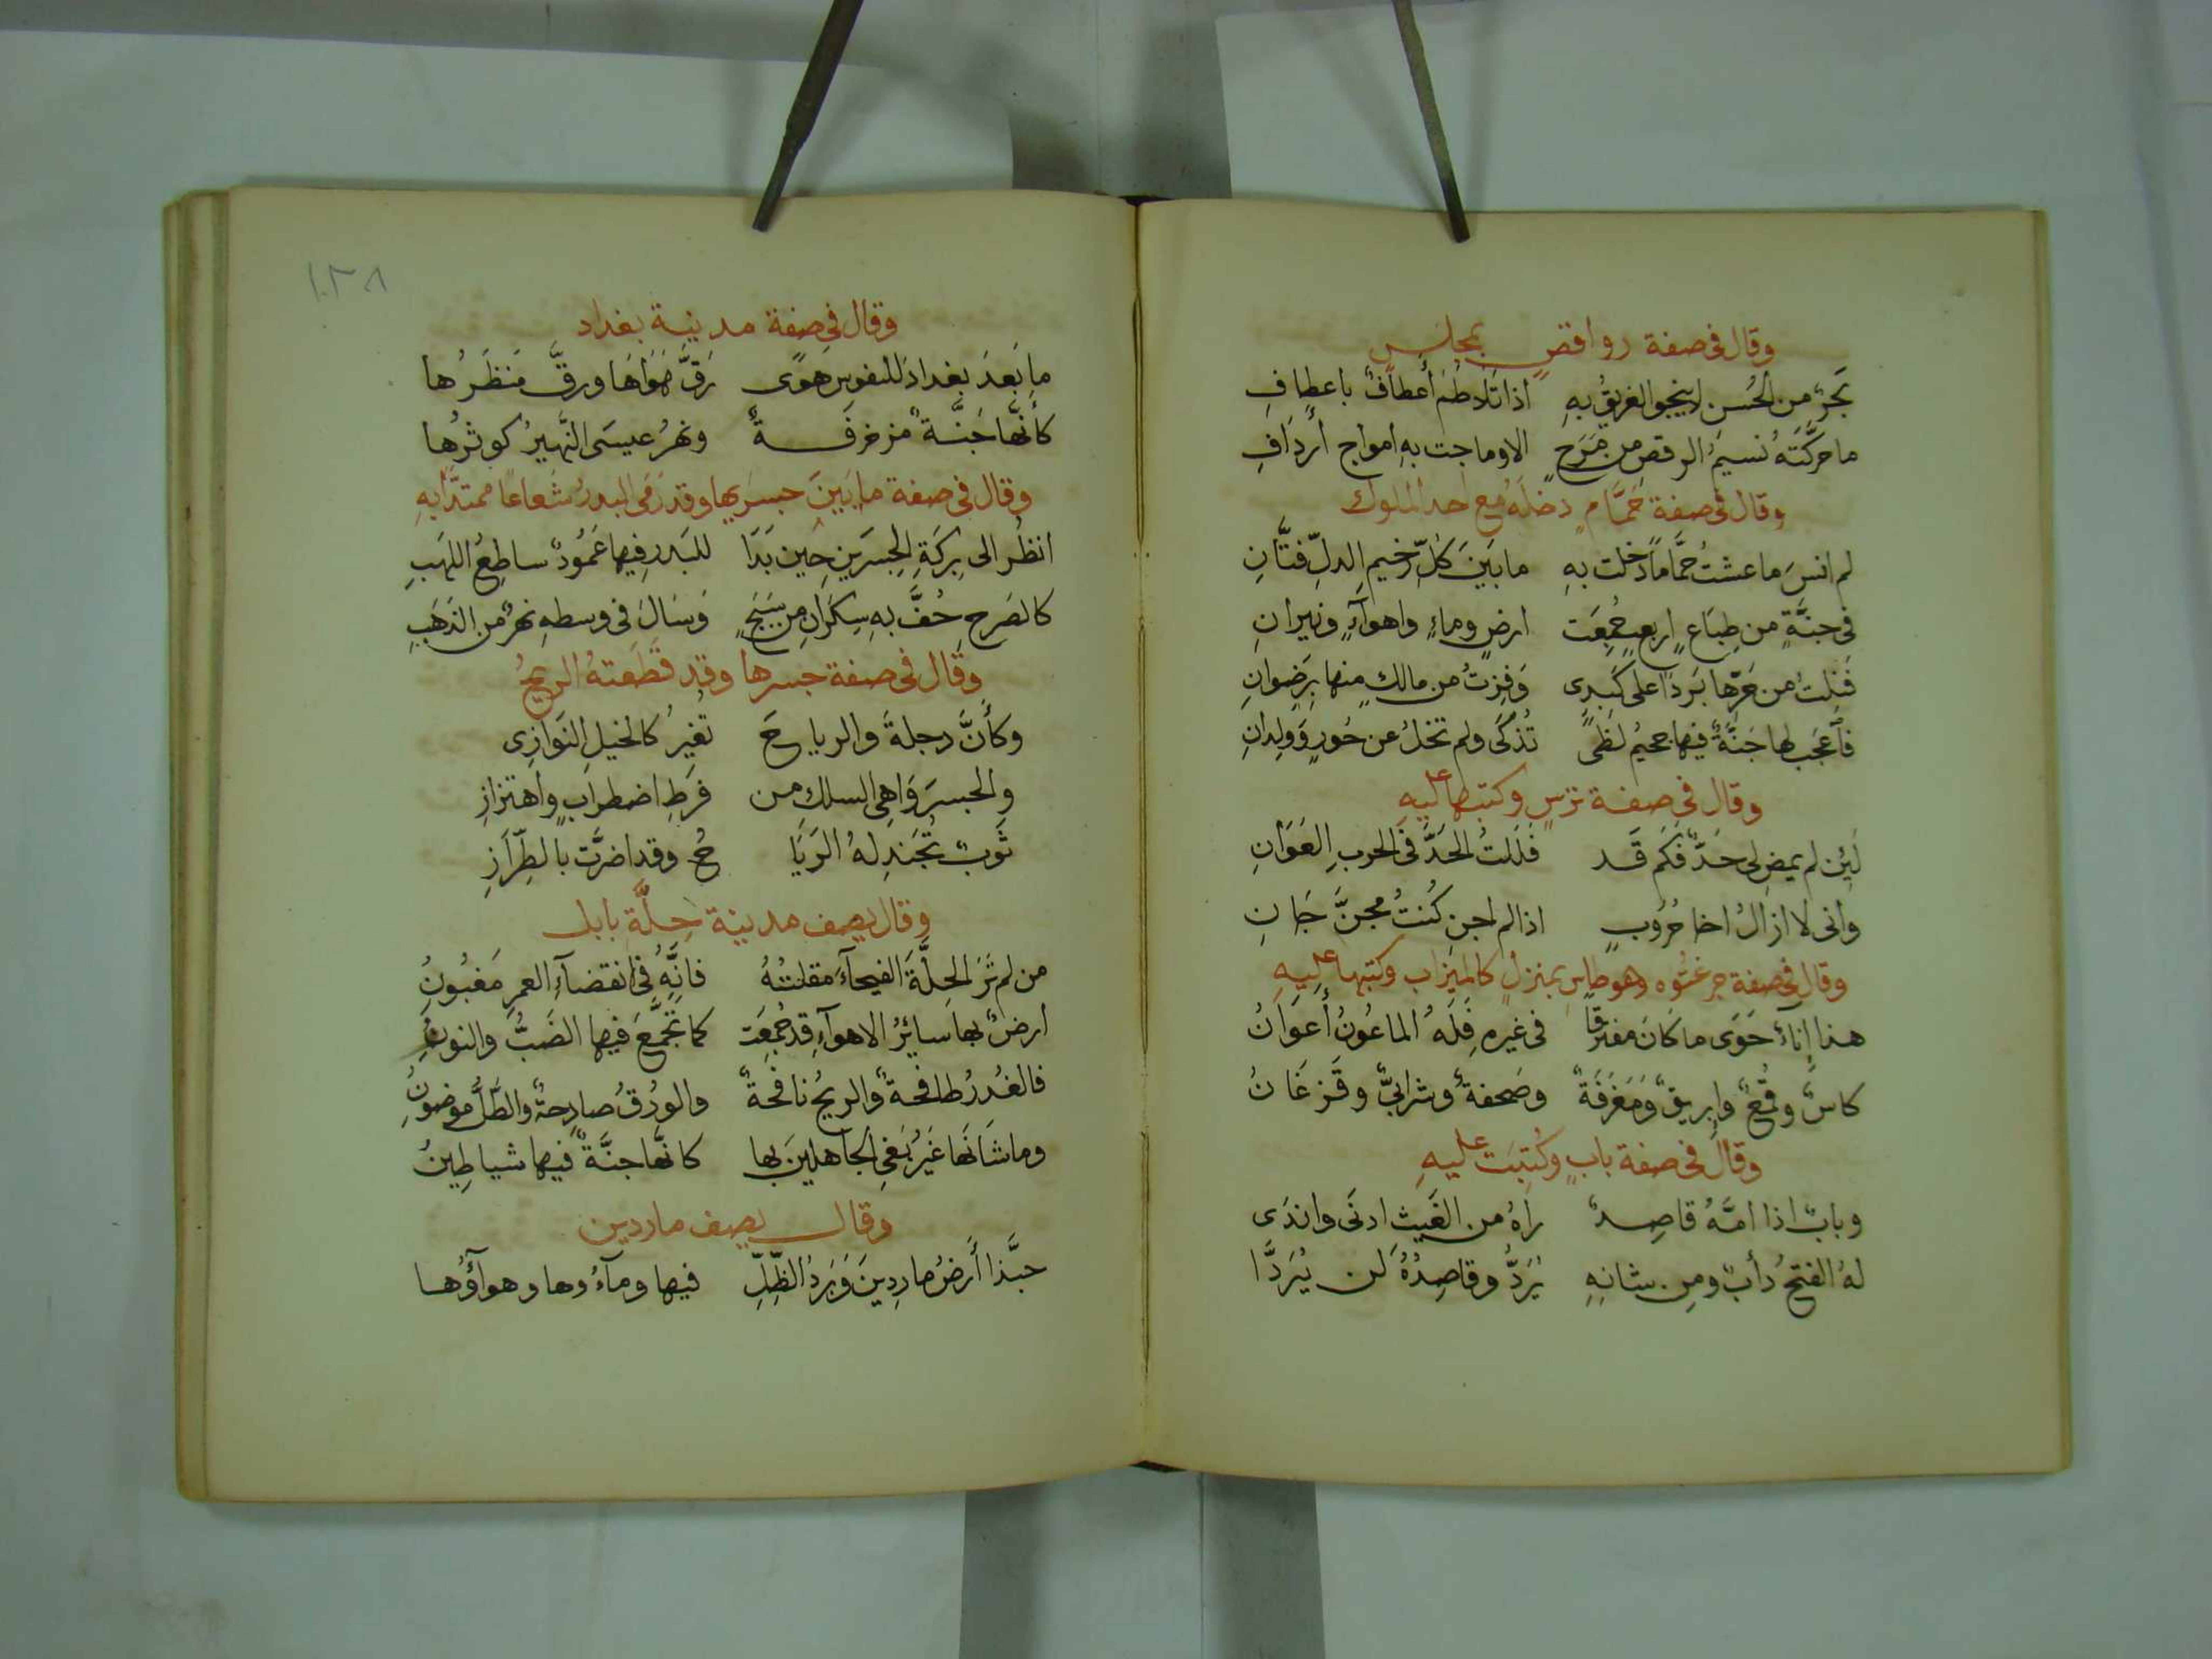 وقال في صفة رواقصٍ بمجلس
بَحرٌ من الحُسنِ لا ينجو الغريقُ بهِ اذا تَلَاطمَ أعطافٌ باعطافِ
ما حركَّتَهُ نسيمُ الرقصِ من مَرَحٍ الا وماجت به امواج أردَافِ
وقال في صفة حَمَّامٍ دخلَهُ مع احد الملوك
لم انسَ ما عشتُ حمَّاماً دخلت بهِ ما بَينَ كُلِّ رخيم الدلِّ فتَّانِ
في جنَّةٍ من طِبَاعٍ اربعٍ جُمِعَت ارضٍ وماءٍ واهوآءٍ ونيرانِ
فَنِلتُ من حَرِّها بَرداً على كَبدِى وَفِزتُ من مالكٍ منها بِرَضوانِ
فآعجَب لها جَنَّةٌ فيها جحيمُ لظىً تُذكَى ولم تخلُ عن حُورٍ وَوِلدانِ
وقال في صفة ترسٍ وكتبها عليهِ
لَئِن لم يمضِ لى حدٌّ فكَم قَد فَلَلتُ الحَدَّ في الحربِ العَوَانِ
وانى لا ازالُ اخا حُرُوبٍ اذا لم اجنِ كُنتُ مجنَّ جَانِ
وقال في صفة جرغتُوه وهو طاس بمنزل كالميزاب وكتبها عليهِ
هذا إناءٌ حَوَى ما كانَ مفترقًا في غيره فَلَهُ الماعُونُ أَعوَانُ
كاسٌ وقُمعٌ وابريقٌ وَمَغرَفَةٌ وصَحفةٌ وشرابىٌّ وقَزغَانُ
وقال في صفة بابٍ وكُتِبَت عليهِ
وبابٌ اذا امَّهُ قاصِدٌ راهُ من الغَيثِ ادنَى واندَى
لهُ الفتحُ دأبٌ ومِن شانِهِ يُرَدُّ وقاصِدُهُ لَن يُرَدَّا
١٠٣٨
وقال في صفة مدينة بغداد
ما بَعدَ بغدادَ للنفوسِ هوًى رَقَّ هَوَاهَا ورقَّ منظَرُها
كأنَّها جَنَّةٌ مزخرفَةٌ ونهرُ عيسَى النَّهيرُ كوثرُها
وقال في صفة ما بَينَ جسرَيها وقد رَمَى البدرُ شُعاعًا ممتدًّا بهِ
انظُر الى بِركَةِ الجسرَينِ حِينَ بَدَا للبَدرِ فيها عَمُودٌ ساطِعُ اللهَبِ
كالصَرحِ حُفَّ بهِ سِكرانِ من سَبَجٍ وَسَالَ في وسطهِ نهرٌ من الذَهَبِ
وقال في صفة جسرها وقد قَطَعتهُ الريحُ
وكأَنَّ دجلةَ والرياحَ تُغيرُ كالخيلِ النَوَازِى
والجسرَ وَاهِى السلكِ من فرَطِ اضطرابٍ واهتزازِ
ثَوبٌ تُجَندِلهُ الرَيَا حُ وقد اضرَّت بالطِرَازِ
وقال يصف مدينة حِلَّة بابل
من لم تَرَ الحِلَّةَ الفيحآءَ مقلتُهُ فانَّهُ في انقضآءِ العمرِ مَغبُونُ
ارضٌ بها سائرُ الاهوآءِ قد جُمِعَت كما تجَمَّعَ فيها الضَبُّ والنونُ
فالغُدرُ طافحةٌ والريحُ نافحةٌ والوُرقُ صادِحةٌ والطَّلُّ موضونُ
وما شَانَها غَيرُ بَغىِ الجاهلينَ بها كانَّها جنَّةٌ فيها شياطِينُ
وقال يصف ماردين
حبَّذا أَرضُ مارِدِينَ وَبَردُ الظِّلِّ فيها ومآءُوها وهوآؤُها